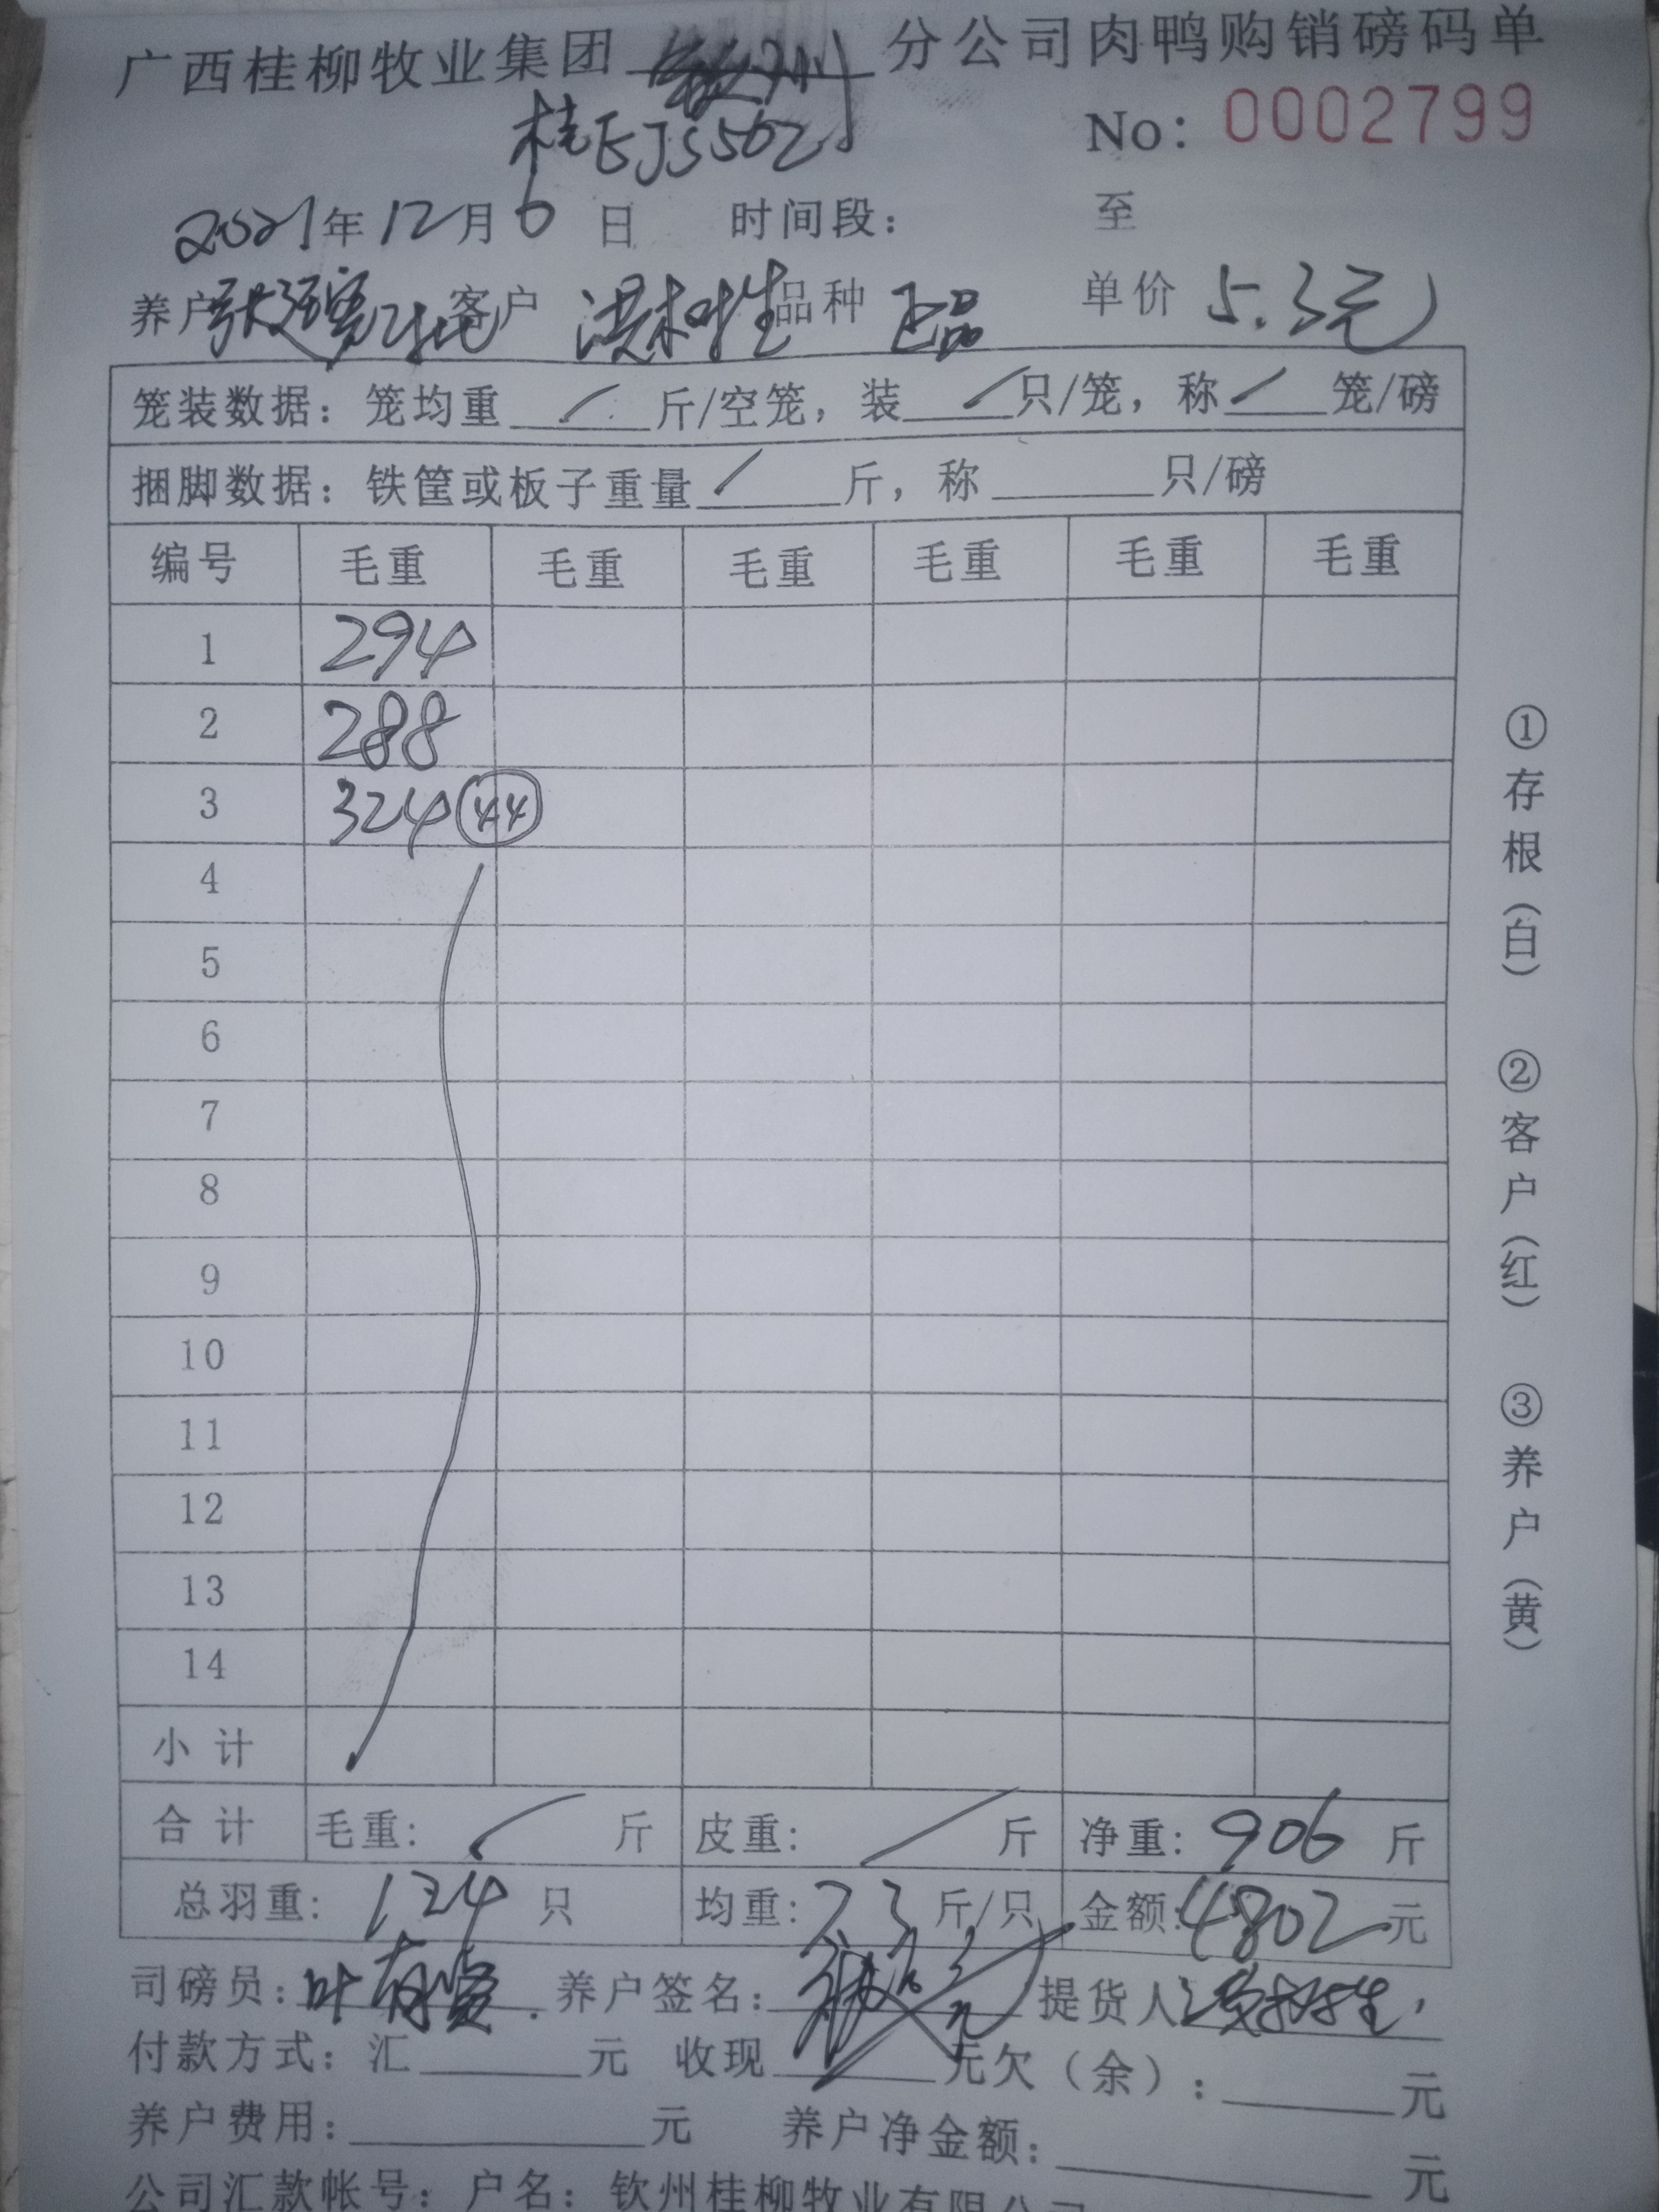 广西桂柳牧业集团 钦州 分公司肉鸭购销磅码单
桂EJS502 No: 0002799
2021年12月6日 时间段: 至
养户 客户 洪树生 品种 正品 单价 5.3元
笼装数据: 笼均重 / 斤/空笼, 装 / 只/笼, 称 / 笼/磅
捆脚数据: 铁筐或板子重量 / 斤, 称 只/磅
编号 毛重 毛重 毛重 毛重 毛重 毛重
1 294
2 288
3 324 44
4
5
6
7
8
9
10
11
12
13
14
小计
合计 毛重: / 斤 皮重: / 斤 净重: 906 斤
总羽重: 124 只 均重: 7.3 斤/只 金额: 4802 元
司磅员: 叶有 养户签名: 提货人
付款方式: 汇 元 收现 元欠(余): 元
养户费用: 元 养户净金额: 元
公司汇款帐号: 户名: 钦州桂柳牧业有限公司
①存根(白) ②客户(红) ③养户(黄)